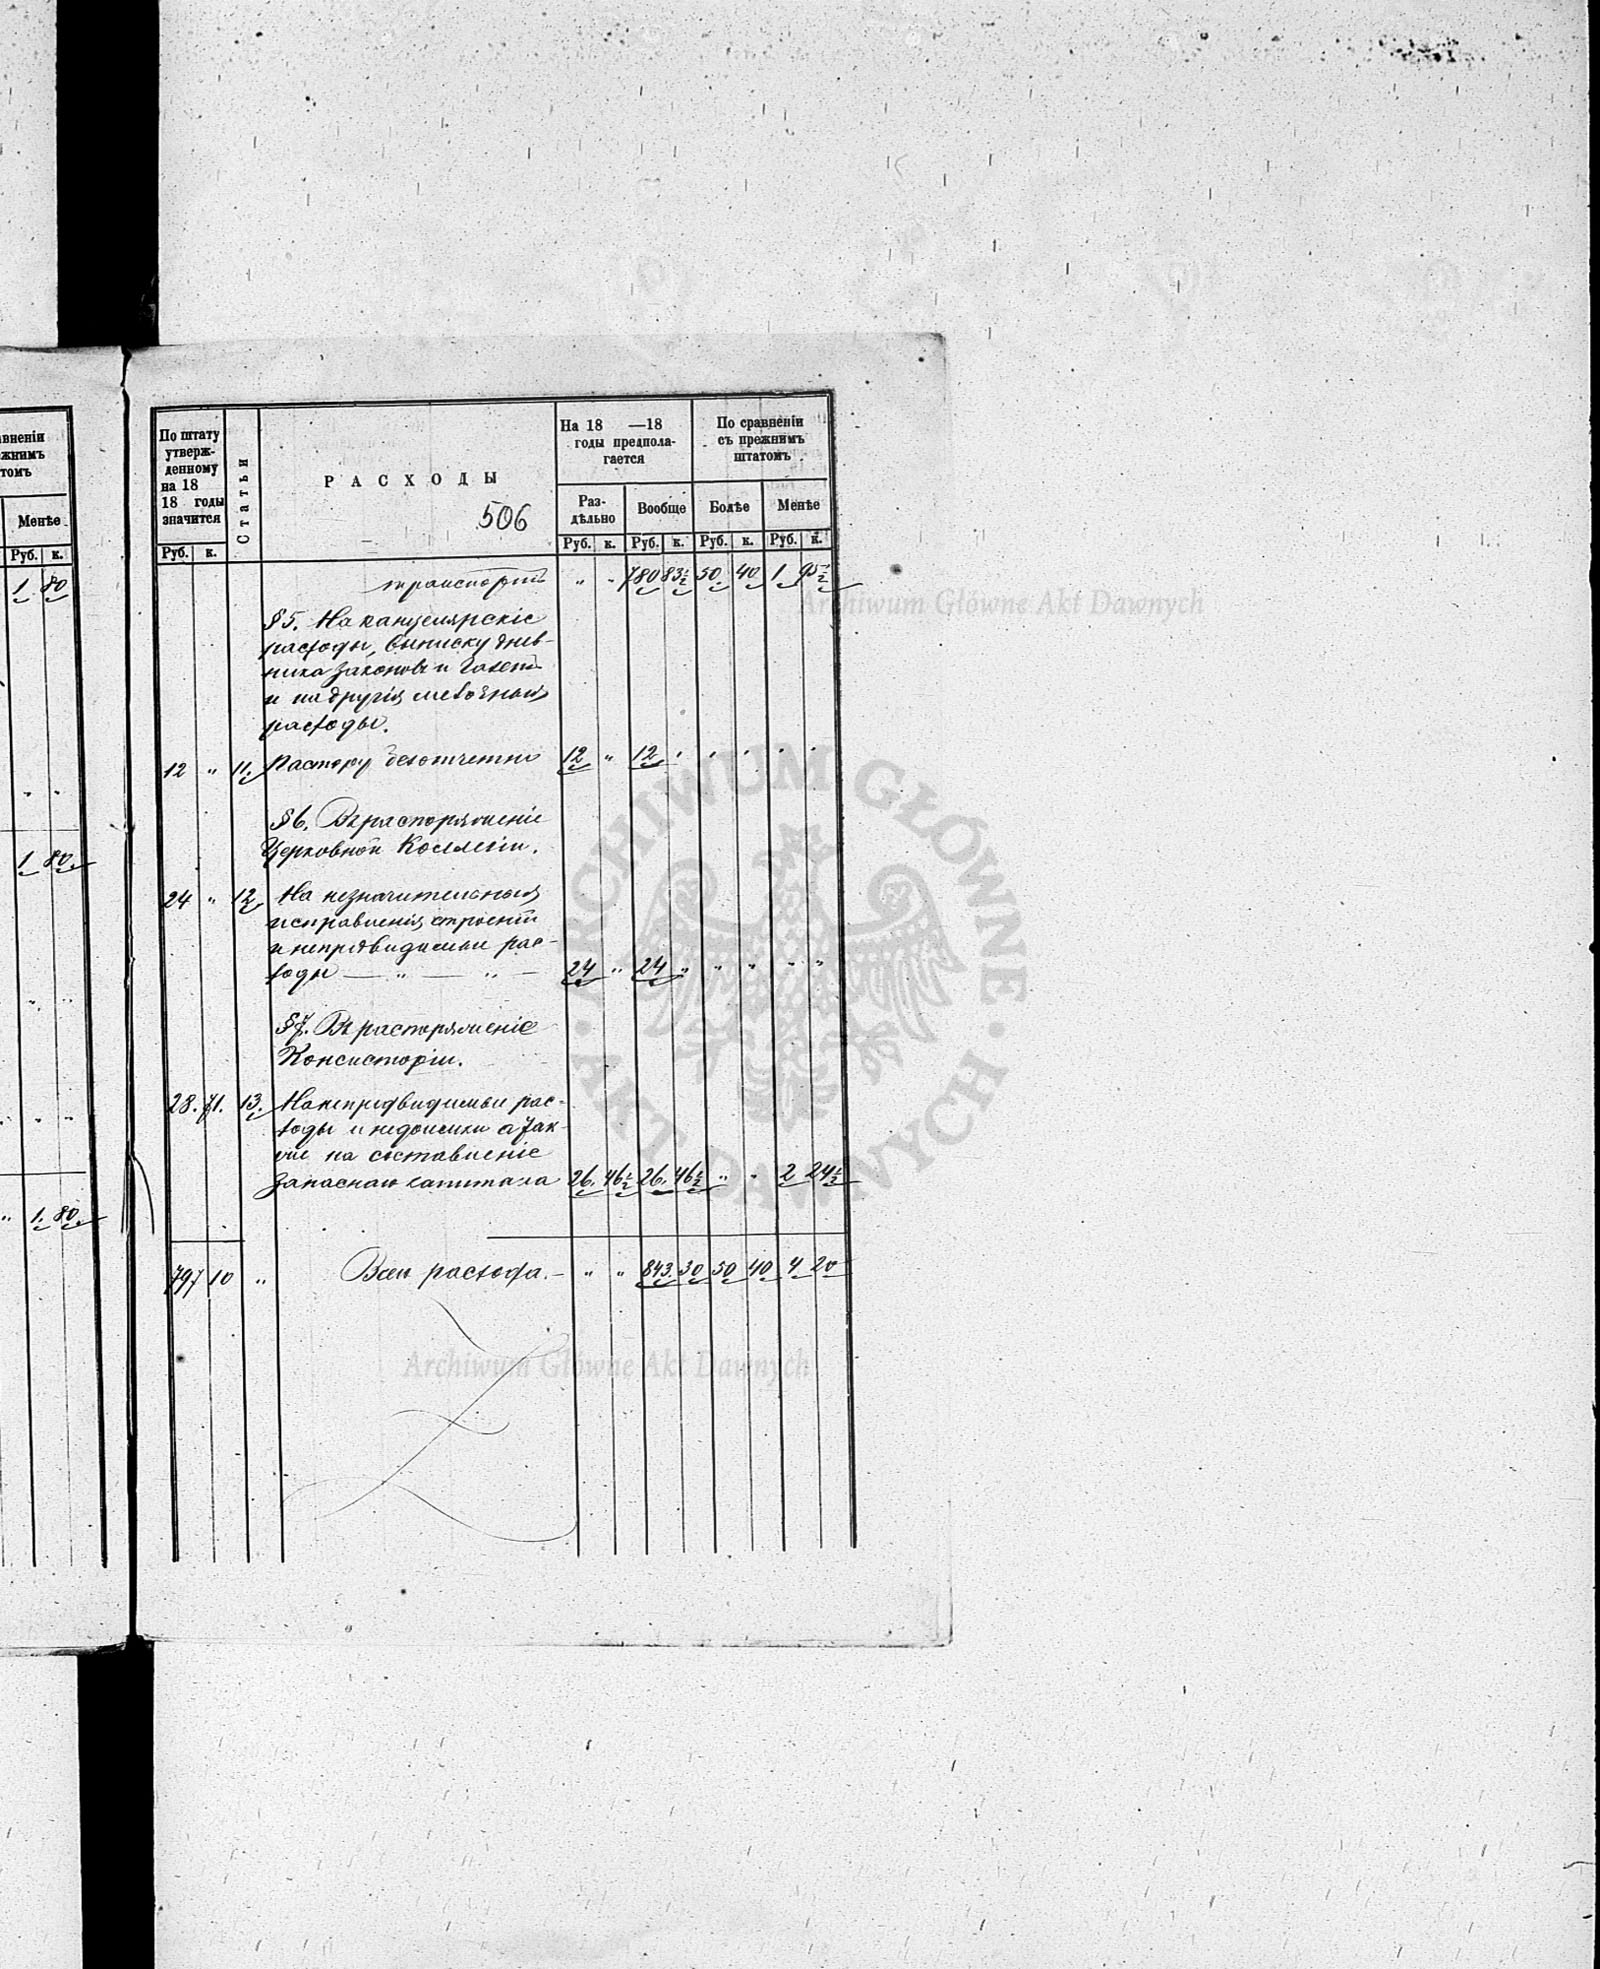 вненіи
жнимъ
томъ
Менѣе
Руб. к.
1 80
" "
1 80
" "
" "
" 1. 80.
По штату
утверж-
денному
на 18
18 годы
значится
Статьи
РАСХОДЫ
506
На 18 —18
годы предпола-
гается
По сравненіи
съ прежнимъ
штатомъ
Раз-
дѣльно
Вообще
Болѣе
Менѣе
Руб. к. Руб. к. Руб. к. Руб. к. Руб. к.
транспортъ " " 780 83½ 50 40 1 95½
§ 5. На канцелярскіе
расходы, выписку днев-
ника законовъ и газетъ
и на другія мелочныя
расходы.
12 " 11. Пастору безотчетно 12 " 12 " " " " "
§ 6. Въ распоряженіе
Церковной Коллегіи.
24 " 12 На незначительныя
исправленія строеній
и непредвидимые рас-
ходы — " — " — 24 " 24 " " " " "
§ 7. Въ распоряженіе
Консисторіи.
28. 71. 13. На непредвидимые рас-
ходы и недоимки а так-
же на составленіе
запаснаго капитала 26. 46½ 26. 46½ " " 2 24½
797 10 " Всего расхода. — " " 843. 30 50 40 4 20
Archiwum Główne Akt Dawnych
ARCHIWUM GŁÓWNE · AKT DAWNYCH ·
Archiwum Główne Akt Dawnych